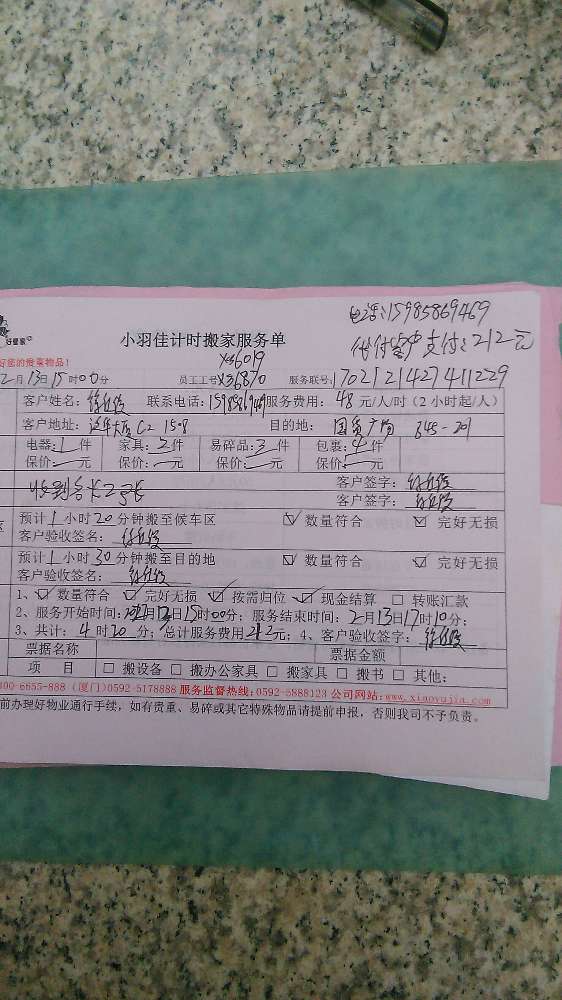 电话:15985869469
代付客户支付:212元
好慷家
小羽佳计时搬家服务单
好您的贵重物品!
X36019
2月13日15时00分 员工工号X36870 服务联号:7021214274112229
客户姓名: 联系电话:15985869469服务费用: 48元/人/时(2小时起/人)
客户地址: 大厦C2 1508 目的地: 国贸广场 845-201
电器:1件 家具:2件 易碎品:3件 包裹:4件
保价: 元 保价: 元 保价: 元 保价: 元
客户签字:
客户签字:
区 预计1小时20分钟搬至候车区 ☑ 数量符合 ☑ 完好无损
客户验收签名:
预计1小时30分钟搬至目的地 ☑ 数量符合 ☑ 完好无损
客户验收签名:
1、☑ 数量符合 ☑ 完好无损 ☑ 按需归位 ☑ 现金结算 □ 转账汇款
2、服务开始时间:2月13日15时00分; 服务结束时间: 2月13日17时10分;
3、共计: 4时20分; 总计服务费用212元; 4、客户验收签字:
票据名称 票据金额
项 目 □ 搬设备 □ 搬办公家具 □ 搬家具 □ 搬书 □ 其他:
400-6655-888 (厦门)0592-5178888 服务监督热线:0592-5888123 公司网站:www.xiaoyujia.com
前办理好物业通行手续,如有贵重、易碎或其它特殊物品请提前申报,否则我司不予负责。